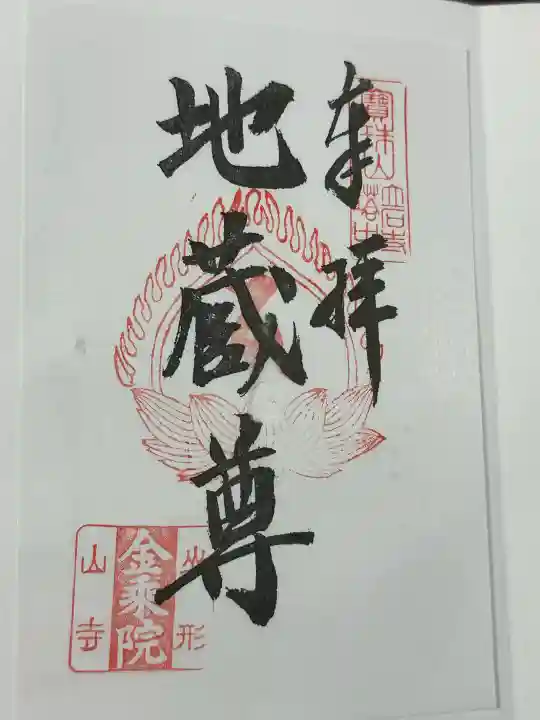 奉拝
寶珠山
立石寺
塔中
地蔵尊
山形
金乘院
山寺